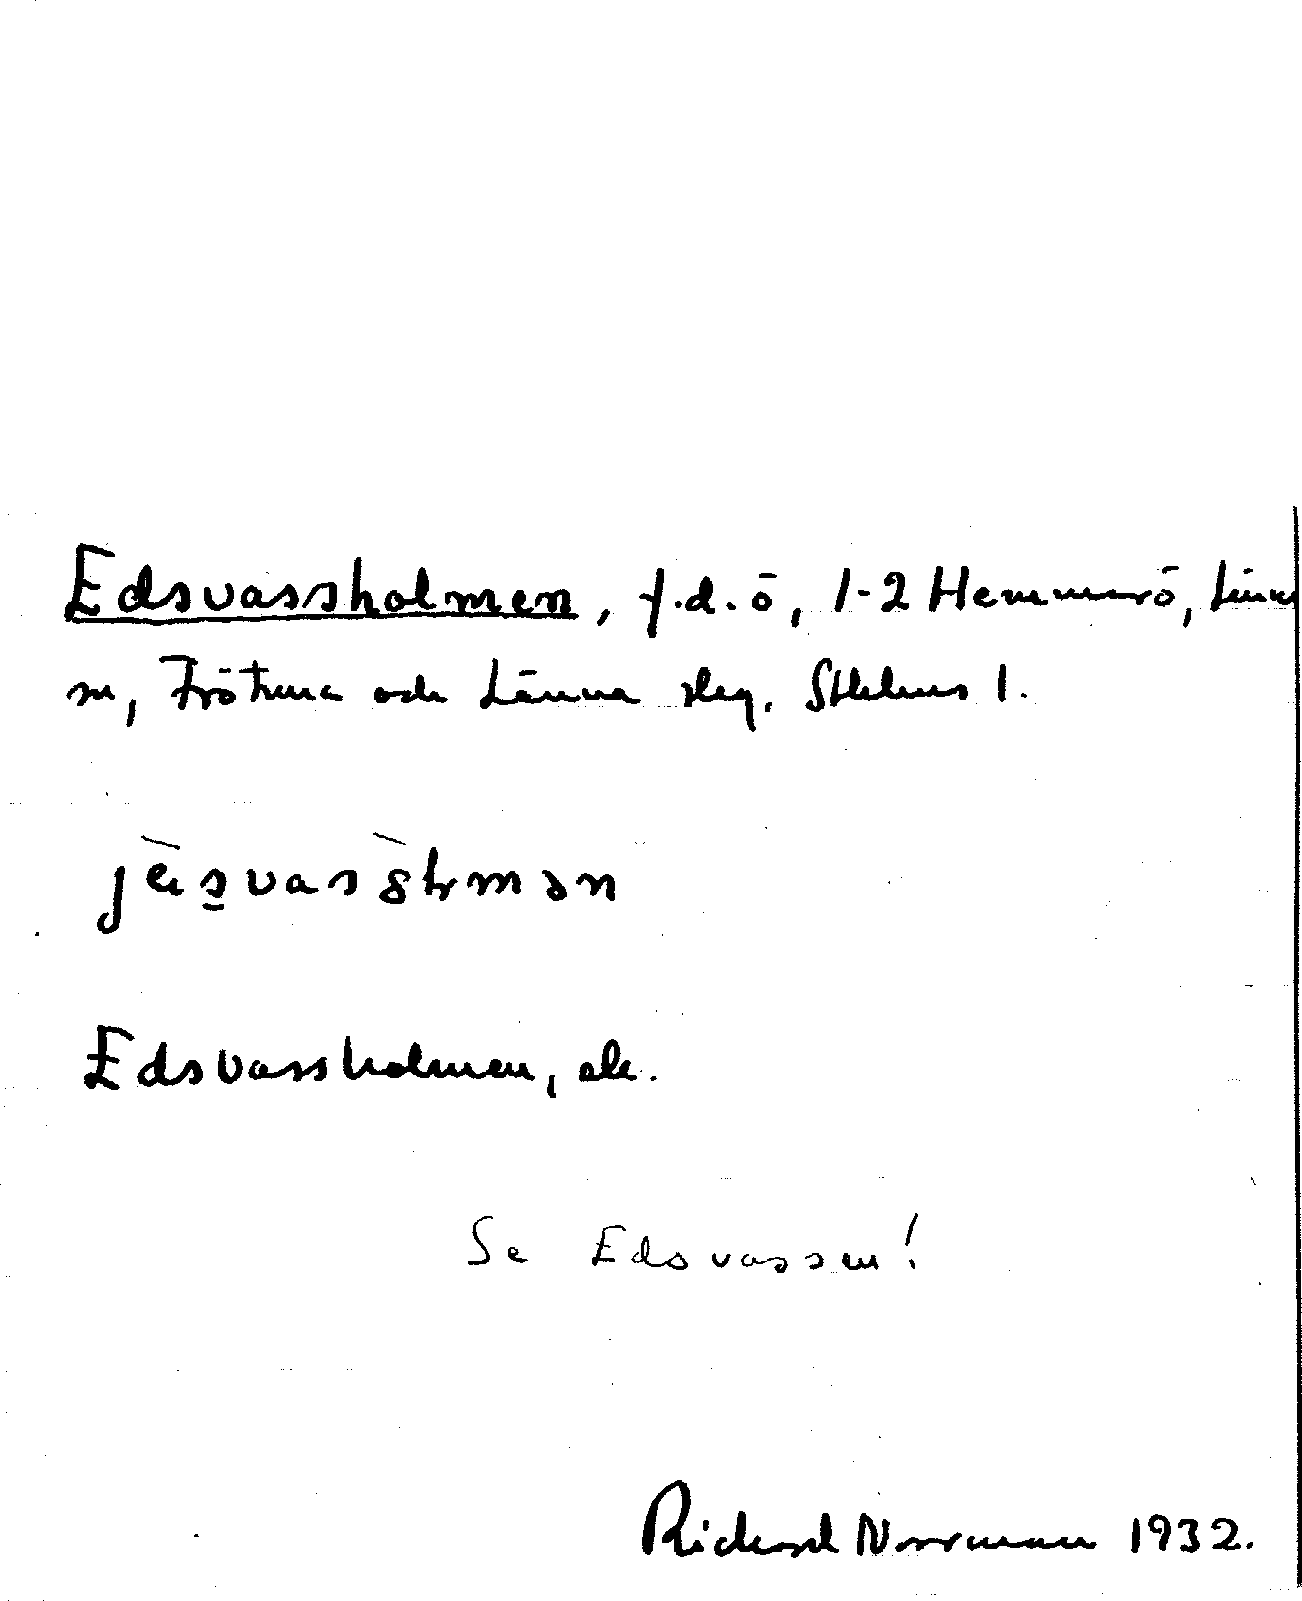 Edsvassholmen, f.d. ö, 1-2 Hemmarö, Länna
sn, Frötuna och Länna slg, Sthlms l.
Edsvassholmen, ek.
Se Edsvassen!
Richard Norrman 1932.